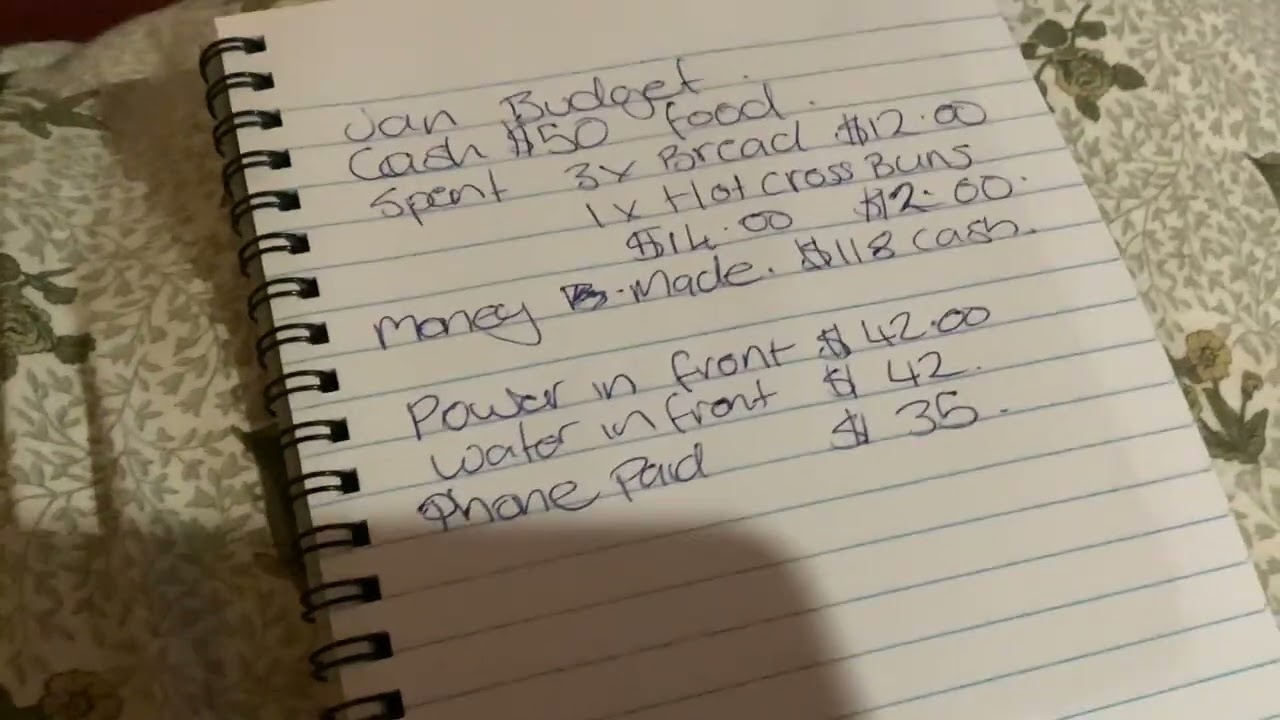 Jan Budget
Cash $50 food.
Spent 3x Bread $12.00
1x Hot cross Buns
$14.00 $2.00.
Money Made. $118 cash.
Power in front $42.00
water in front $42.
Phone Paid $35.